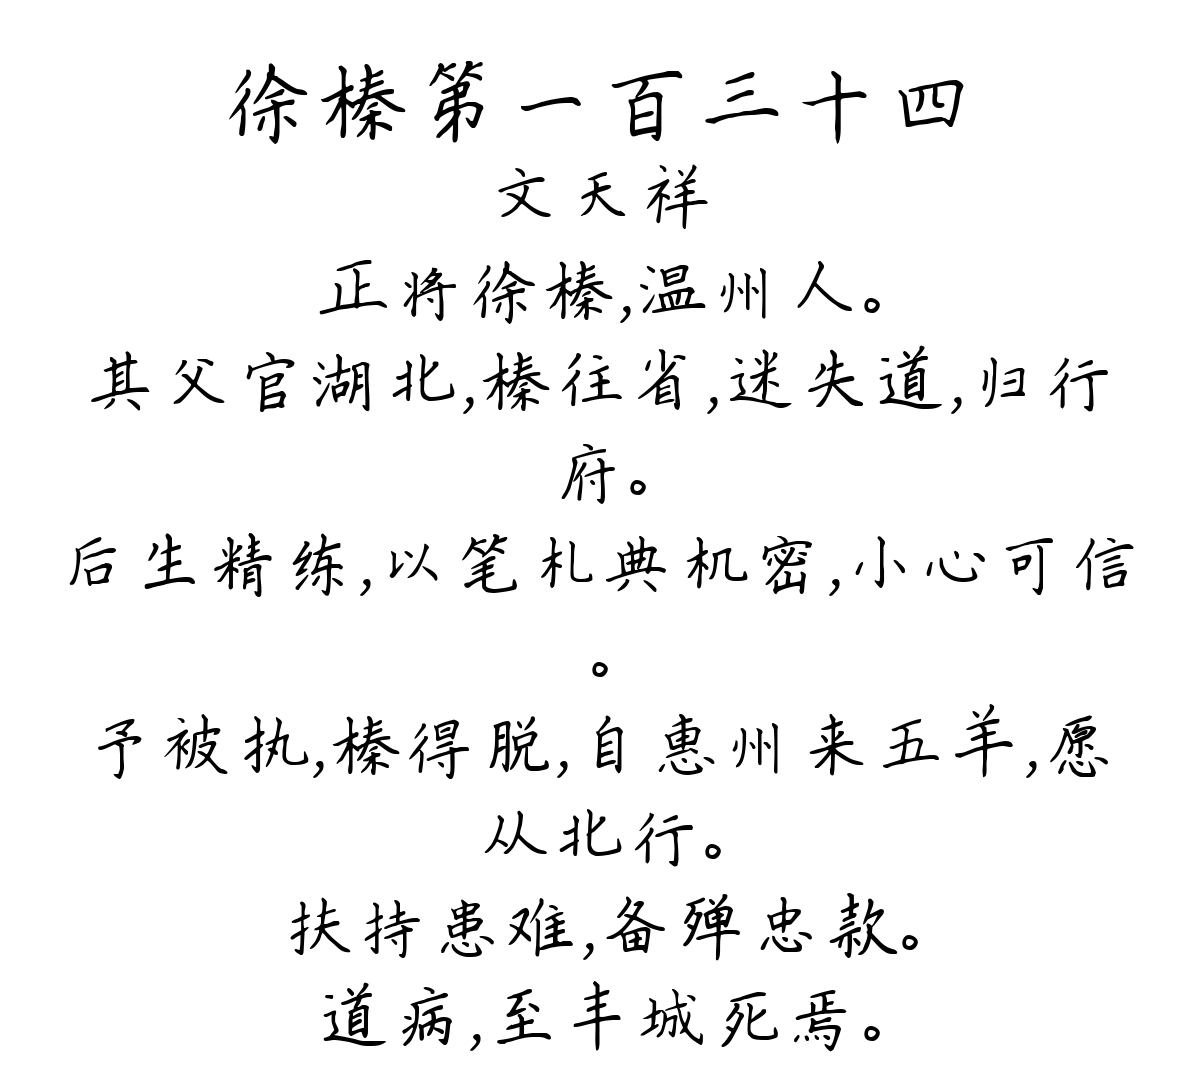 徐榛第一百三十四
文天祥
正将徐榛,温州人。
其父官湖北,榛往省,迷失道,归行
府。
后生精练,以笔札典机密,小心可信
。
予被执,榛得脱,自惠州来五羊,愿
从北行。
扶持患难,备殚忠款。
道病,至丰城死焉。